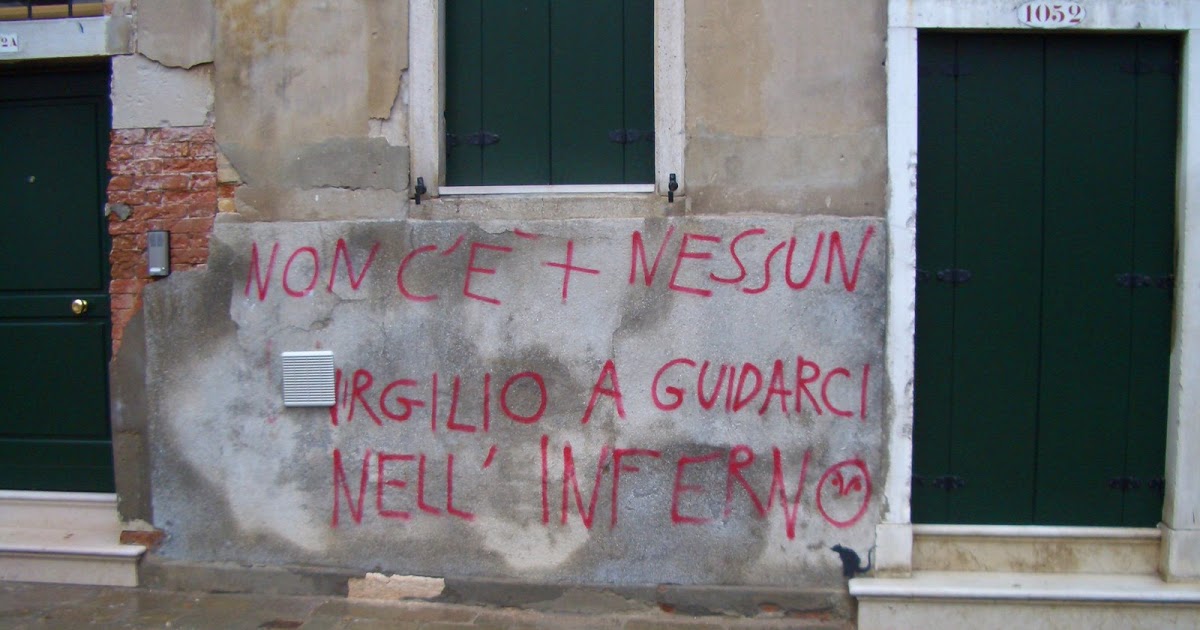 1052
2A
NON C'È + NESSUN
VIRGILIO A GUIDARCI
NELL' INFERNO